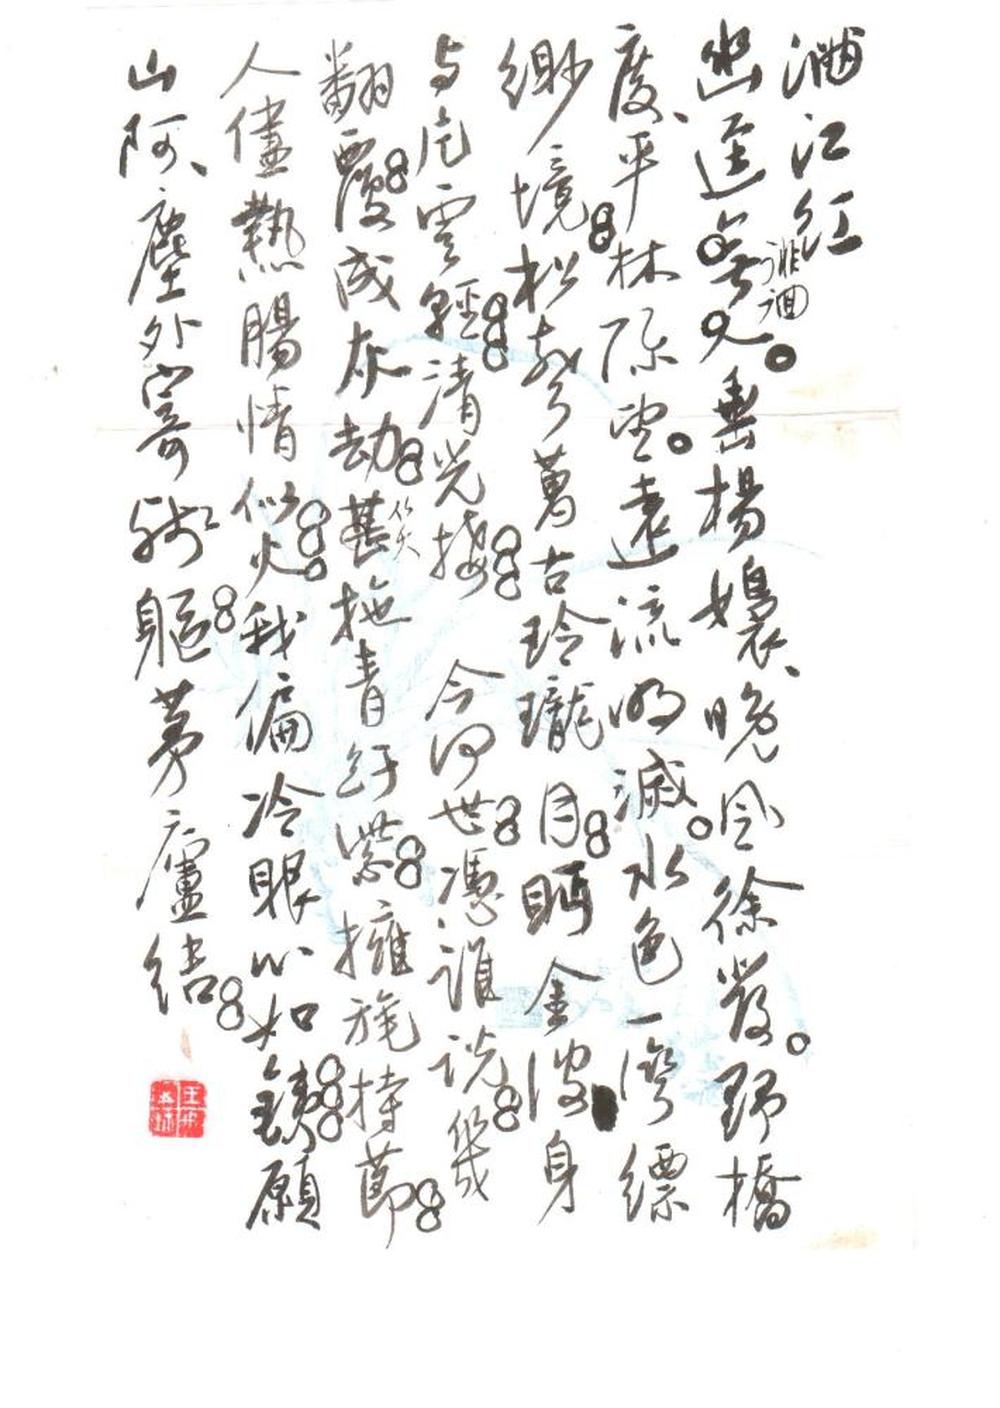 滿江紅
幽逕無人垂楊嬝、晚風徐發。野橋
徘徊
度、平林際望。遠流明滅。水色一灣縹
緲境松聲萬古玲瓏月。眄金波身
与片雲輕清光接 今何世憑誰說幾
翻覆成灰劫甚拖青紆紫擁旄持節
笑
人儘熱腸情似火我偏冷眼心如鐵願
山阿、塵外寄殘軀茅廬結